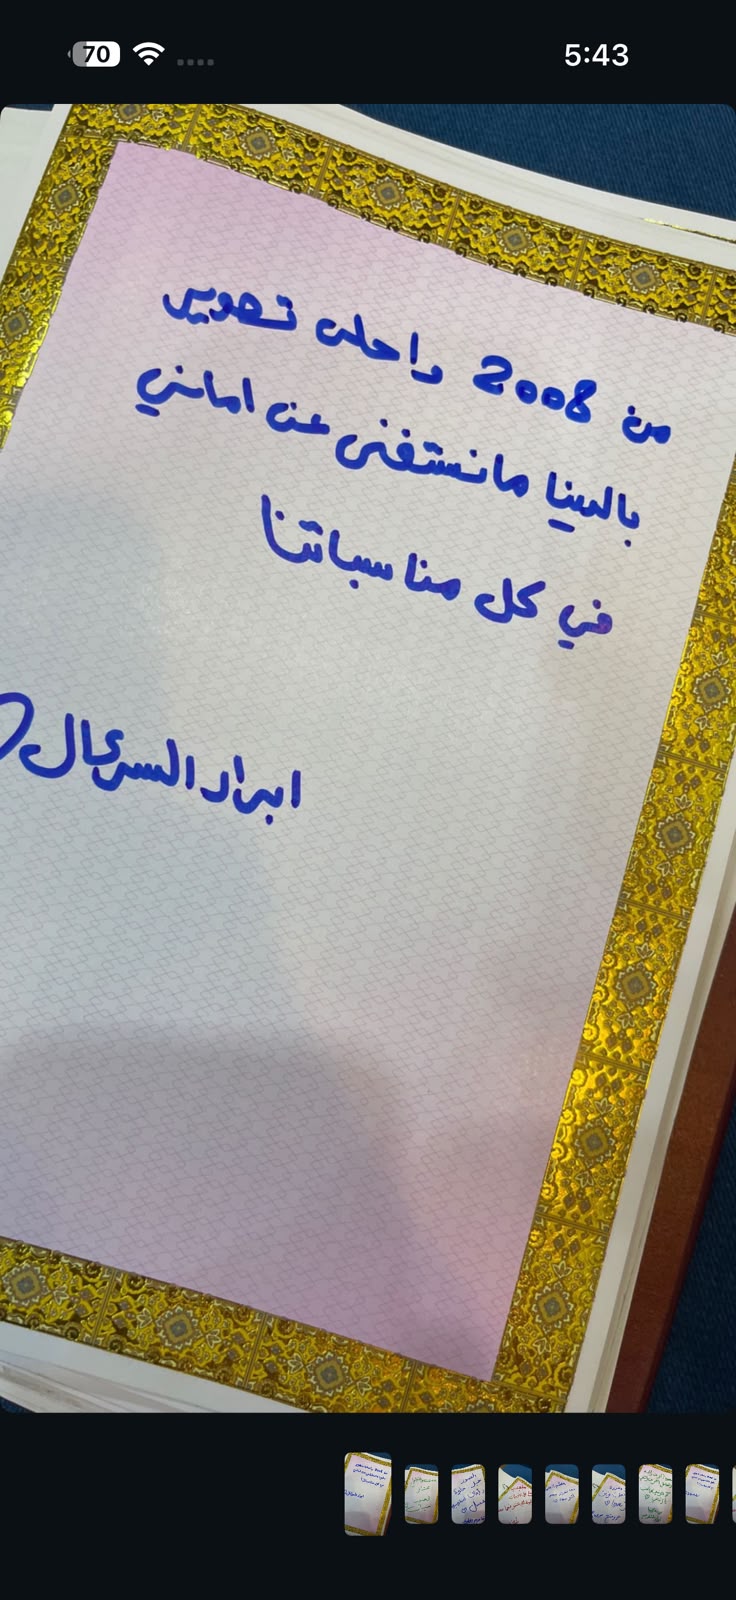 70
5:43
من 2008 واحلى تصوير
بالدنيا مانستغنى عن اماني
في كل مناسباتنا
ابرار